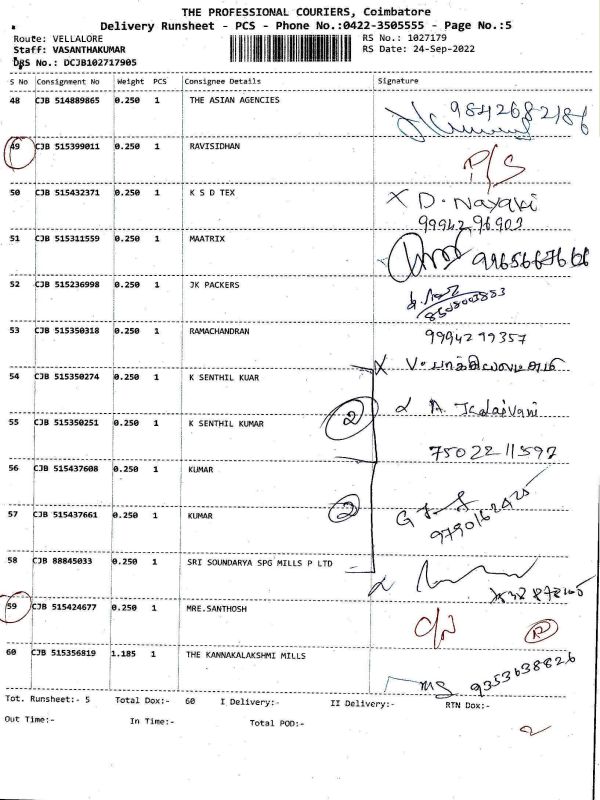 THE PROFESSIONAL COURIERS, Coimbatore
Delivery Runsheet - PCS - Phone No.:0422-3505555 - Page No.:5
Route: VELLALORE RS No.: 1027179
Staff: VASANTHAKUMAR RS Date: 24-Sep-2022
DRS No.: DCJB102717905
S No Consignment No Weight PCS Consignee Details Signature
48 CJB 514889865 0.250 1 THE ASIAN AGENCIES 9842682186
49 CJB 515399011 0.250 1 RAVISIDHAN P/S
50 CJB 515432371 0.250 1 K S D TEX X D. Nayaki
9994296903
51 CJB 515311559 0.250 1 MAATRIX
52 CJB 515236998 0.250 1 JK PACKERS
8508003883
53 CJB 515350318 0.250 1 RAMACHANDRAN 9994299357
54 CJB 515350274 0.250 1 K SENTHIL KUAR X V.
55 CJB 515350251 0.250 1 K SENTHIL KUMAR 2 A. Kalaivani
7502211597
56 CJB 515437608 0.250 1 KUMAR
57 CJB 515437661 0.250 1 KUMAR 2 9790162425
58 CJB 88845033 0.250 1 SRI SOUNDARYA SPG MILLS P LTD
59 CJB 515424677 0.250 1 MRE.SANTHOSH
60 CJB 515356819 1.185 1 THE KANNAKALAKSHMI MILLS MS 9353638826
Tot. Runsheet:- 5 Total Dox:- 60 I Delivery:- II Delivery:- RTN Dox:-
Out Time:- In Time:- Total POD:- 2